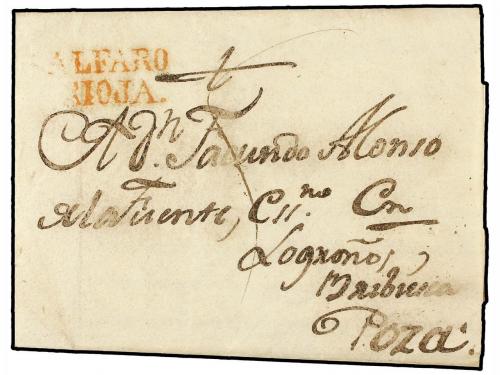 ALFARO
RIOJA.
A Dn. Facundo Alonso
de la Fuente, Essno. En
Logroño,
Bribiesca
Poza.